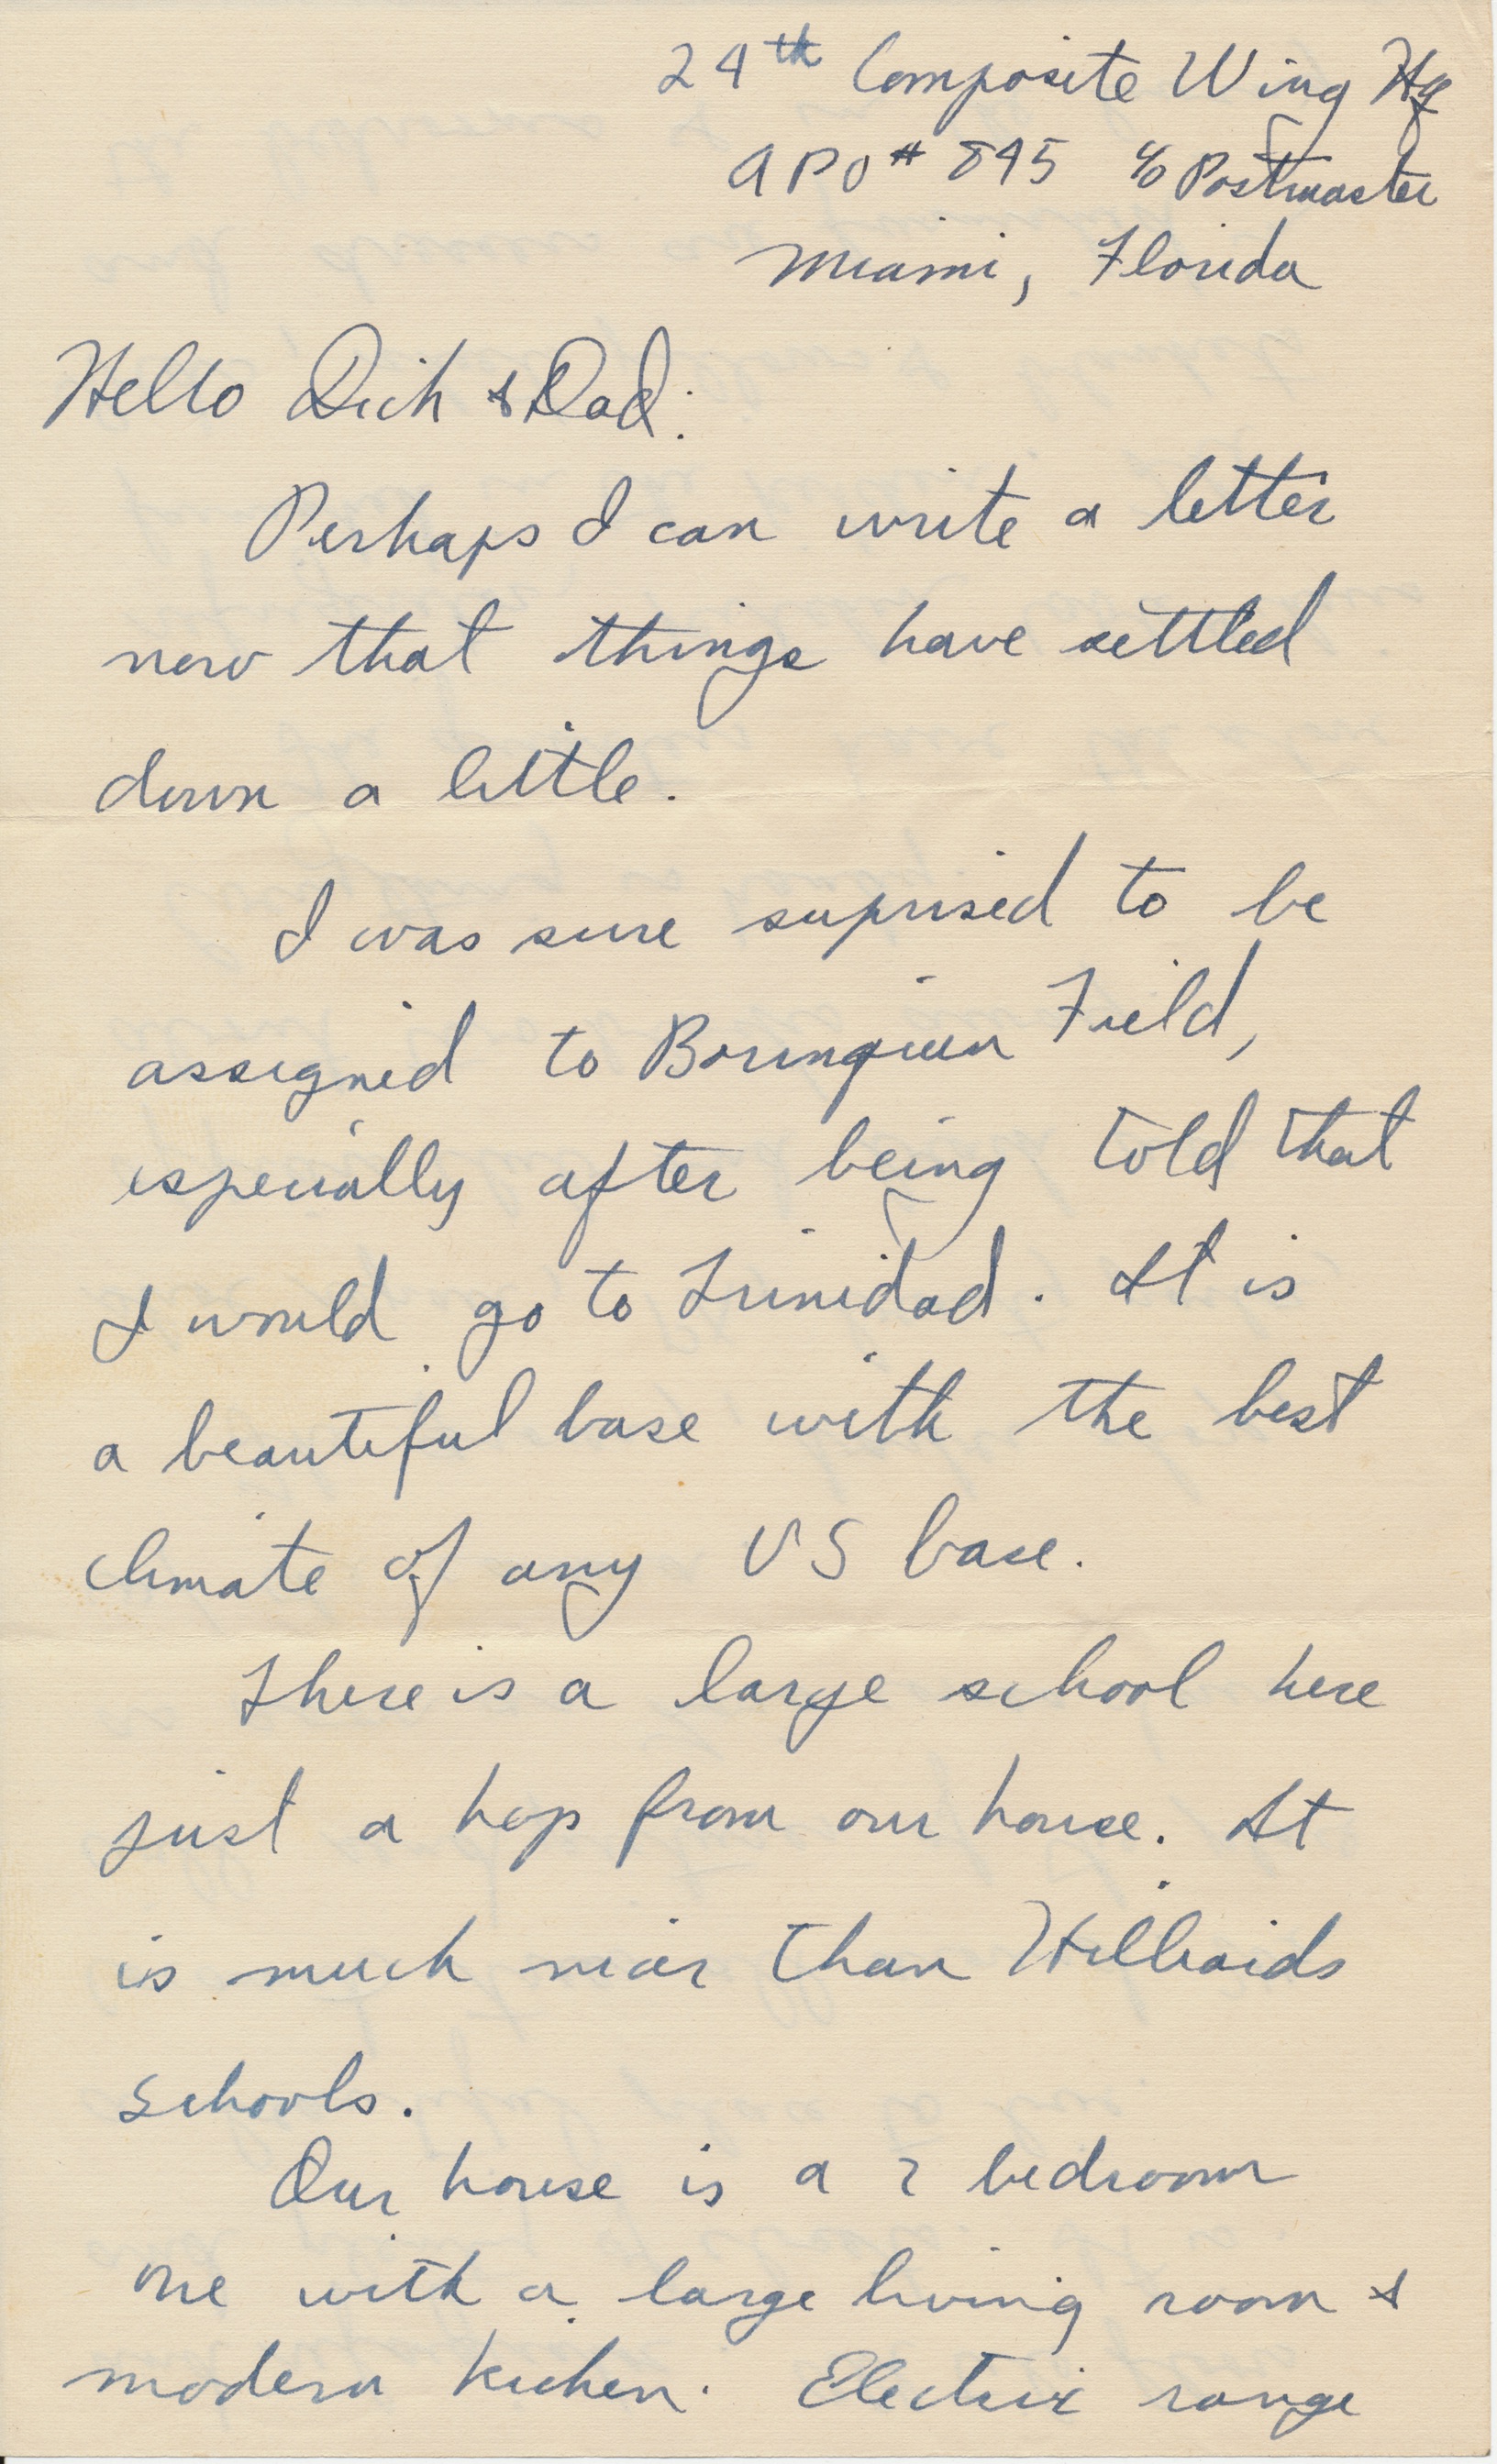 24th Composite Wing Hq
APO # 845 c/o Postmaster
Miami, Florida
Hello Dick & Dad:
Perhaps I can write a letter
now that things have settled
down a little.
I was sure suprised to be
assigned to Borinquen Field,
especially after being told that
I would go to Trinidad. It is
a beautiful base with the best
climate of any US base.
There is a large school here
just a hop from our house. It
is much nicer than Hilliards
schools.
Our house is a 2 bedroom
one with a large living room &
modern kichen. Electric range